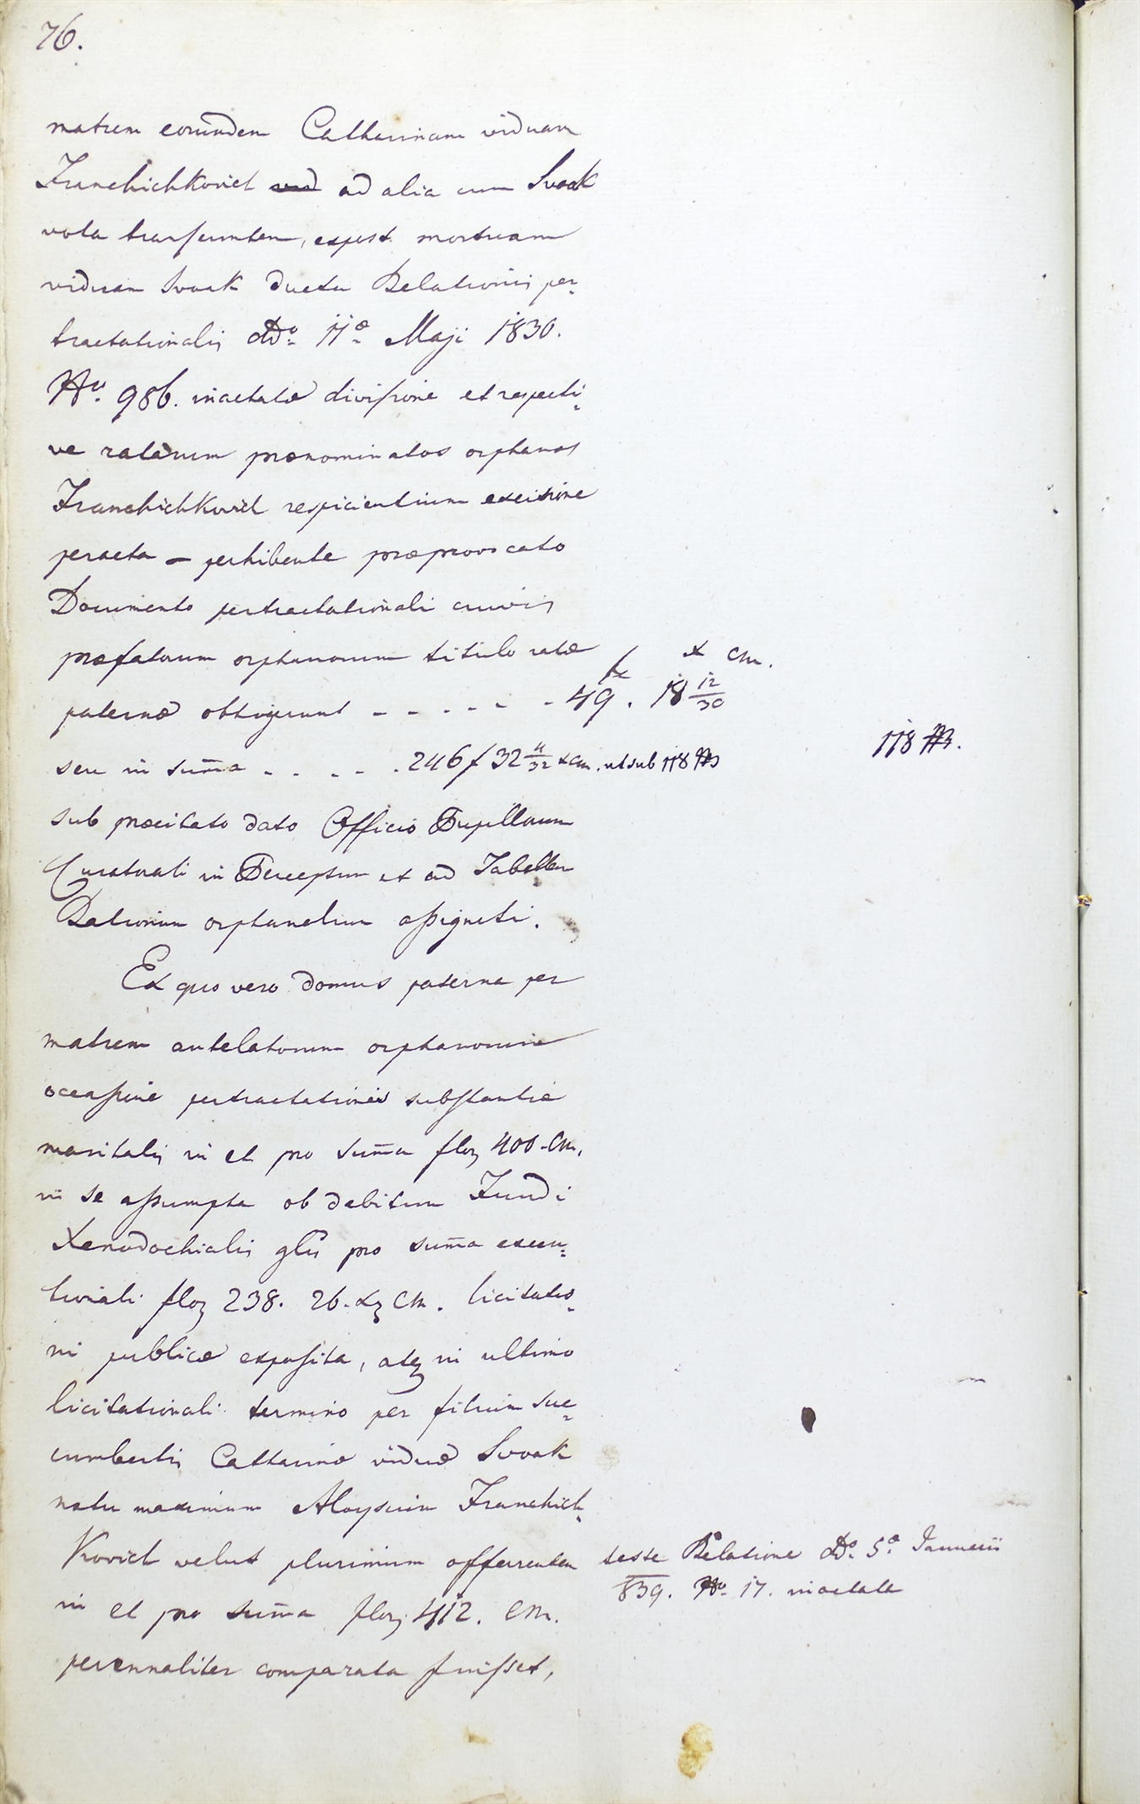 76.
matrem eorundem Catharinam viduam
Franchichkovich ad alia cum Svoak
vota transeuntem, expost mortuam
viduam Svoak ductu Relationis per-
tractationalis ddo 11a Maji 1830.
No. 986. inactatae divisione et respecti-
ve ratarum praenominatos orphanos
Franchichkovich respicientium excisione
peracta – perhibente praeprovocato
Documento pertractationali cuivis
praefatorum orphanorum titulo ratae
f x Cm.
paternae obtigerunt - - - - - - 49. 18 12/30
seu in suma - - - - - 246 f 32 4/32 x Cm. ut sub 118
118
sub praecitato dato Officio Pupillarum
Curatorali in Perceptum et ad Tabellam
Rationum orphanalium assignati.
Ex quo vero domus paterna per
matrem antelatorum orphanorum
occasione pertractationis substantiae
maritalis in et pro suma flor 400. Cm.
in se assumpta ob debitum Fundi
Xenodochialis glis pro suma execu-
tionali flor 238. 26. xr Cm. licitatio-
ni publicae exposita, atq in ultimo
licitationali termino per filium suc-
cumbentis Catharinae viduae Svoak
natu maximum Aloysium Franchich-
kovich velut plurimum offerentem teste Relatione ddo 5a Januarii
839. No. 17. inactata
in et pro suma flor 412. Cm.
perennaliter comparata fuisset,